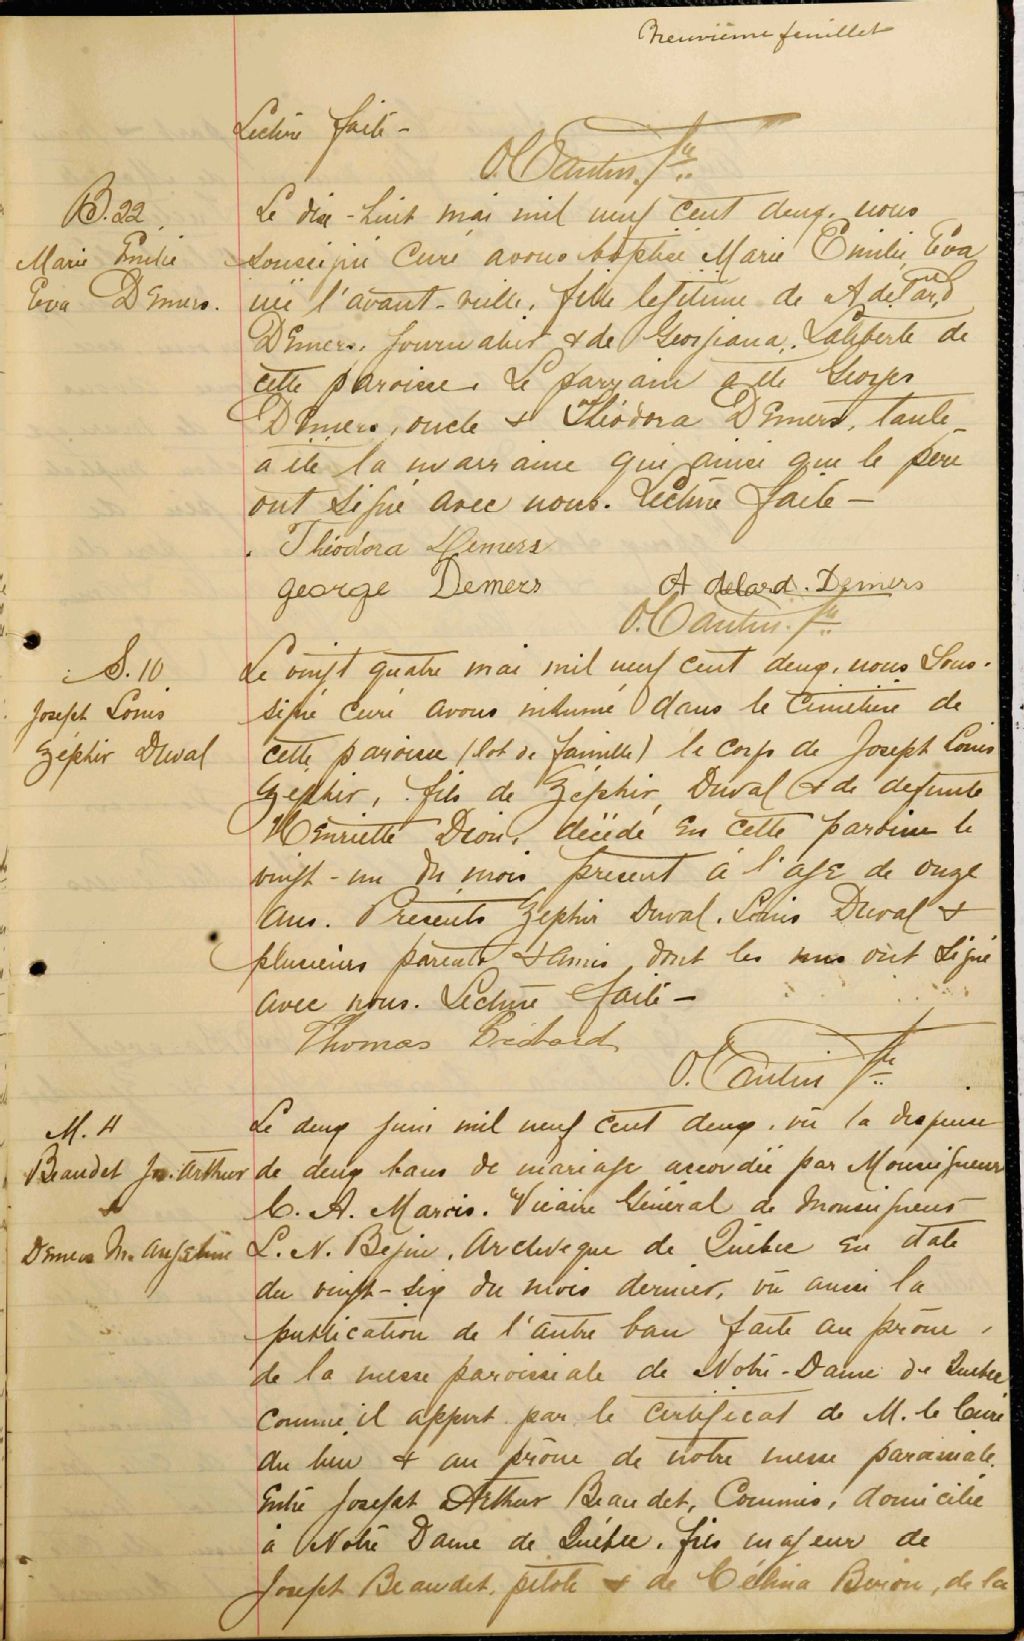 Neuvième feuillet
Lecture faite -
O. Cantin Ptre
B. 22
Marie Emilie
Eva Demers.
Le dix-huit mai mil neuf cent deux, nous
soussigné Curé avons baptisé Marie Emilie Eva
née l'avant-veille, fille legitime de Adelard
Demers, journalier & de Georgiana Laliberté de
cette paroisse. Le parrain a été Georges
Demers, oncle & Théodora Demers, tante
a été la marraine qui ainsi que le père
ont signé avec nous. Lecture faite -
Théodora Demers
george Demers Adelard. Demers
O. Cantin. Ptre
S. 10
Joseph Louis
Zéphir Duval
Le vingt quatre mai mil neuf cent deux, nous Sous-
signé Curé avons inhumé dans le Cimetière de
cette paroisse (lot de famille) le corps de Joseph Louis
Zéphir, fils de Zéphir Duval & de defunte
Henriette Dion, décédé en cette paroisse le
vingt-un du mois present à l'age de onze
ans. Présents Zephir Duval, Louis Duval &
plusieurs parents & amis dont les uns ont signé
avec nous. Lecture faite -
Thomas
O. Cantin Ptre
M. 4
Beaudet Js. Arthur
&
Demers M. Angeline
Le deux juin mil neuf cent deux, vû la dispense
de deux bans de mariage accordée par Monseigneur
C. A. Marois. Vicaire Général de Monseigneur
L. N. Begin, Archevêque de Québec en date
du vingt-six du mois dernier, vû aussi la
publication de l'autre ban faite au prône
de la messe paroissiale de Notre-Dame de Quebec
comme il appert par le certificat de M. le Curé
du lieu & au prône de notre messe paroissiale.
Entre Joseph Arthur Beaudet, Commis, domicilié
à Notre Dame de Québec, fils majeur de
Joseph Beaudet, pilote & de Célina, de la